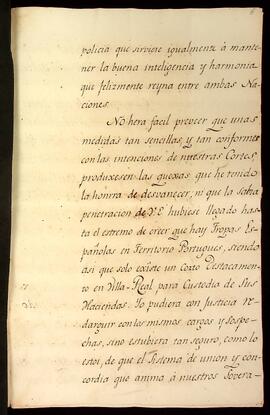 policia que sirviese igualmente à mante-
ner la buena inteligencia y harmonia
que felizmente reyna entre ambas Na-
ciones.
No hera facil preveer que unas
medidas tan sencillas, y tan conformes
con las intenciones de nuestras Cortes,
produxesen las quexas que he tenido
la honrra de desvanecer, ni que la sabia
penetracion de V.E hubiese llegado has-
ta el estremo de creer que hay Tropas Es-
pañolas en Territorio Portugues, siendo
asi que solo existe un Corto Destacamen-
to en Villa-Real para Custodia de sus
Haciendas. Yo pudiera con Justicia re-
darguir con los mismos cargos y sospe-
chas, sino estubiera tan seguro, como lo
estoi, de que el Sistema de union y con-
cordia que anima à nuestros Sovera-